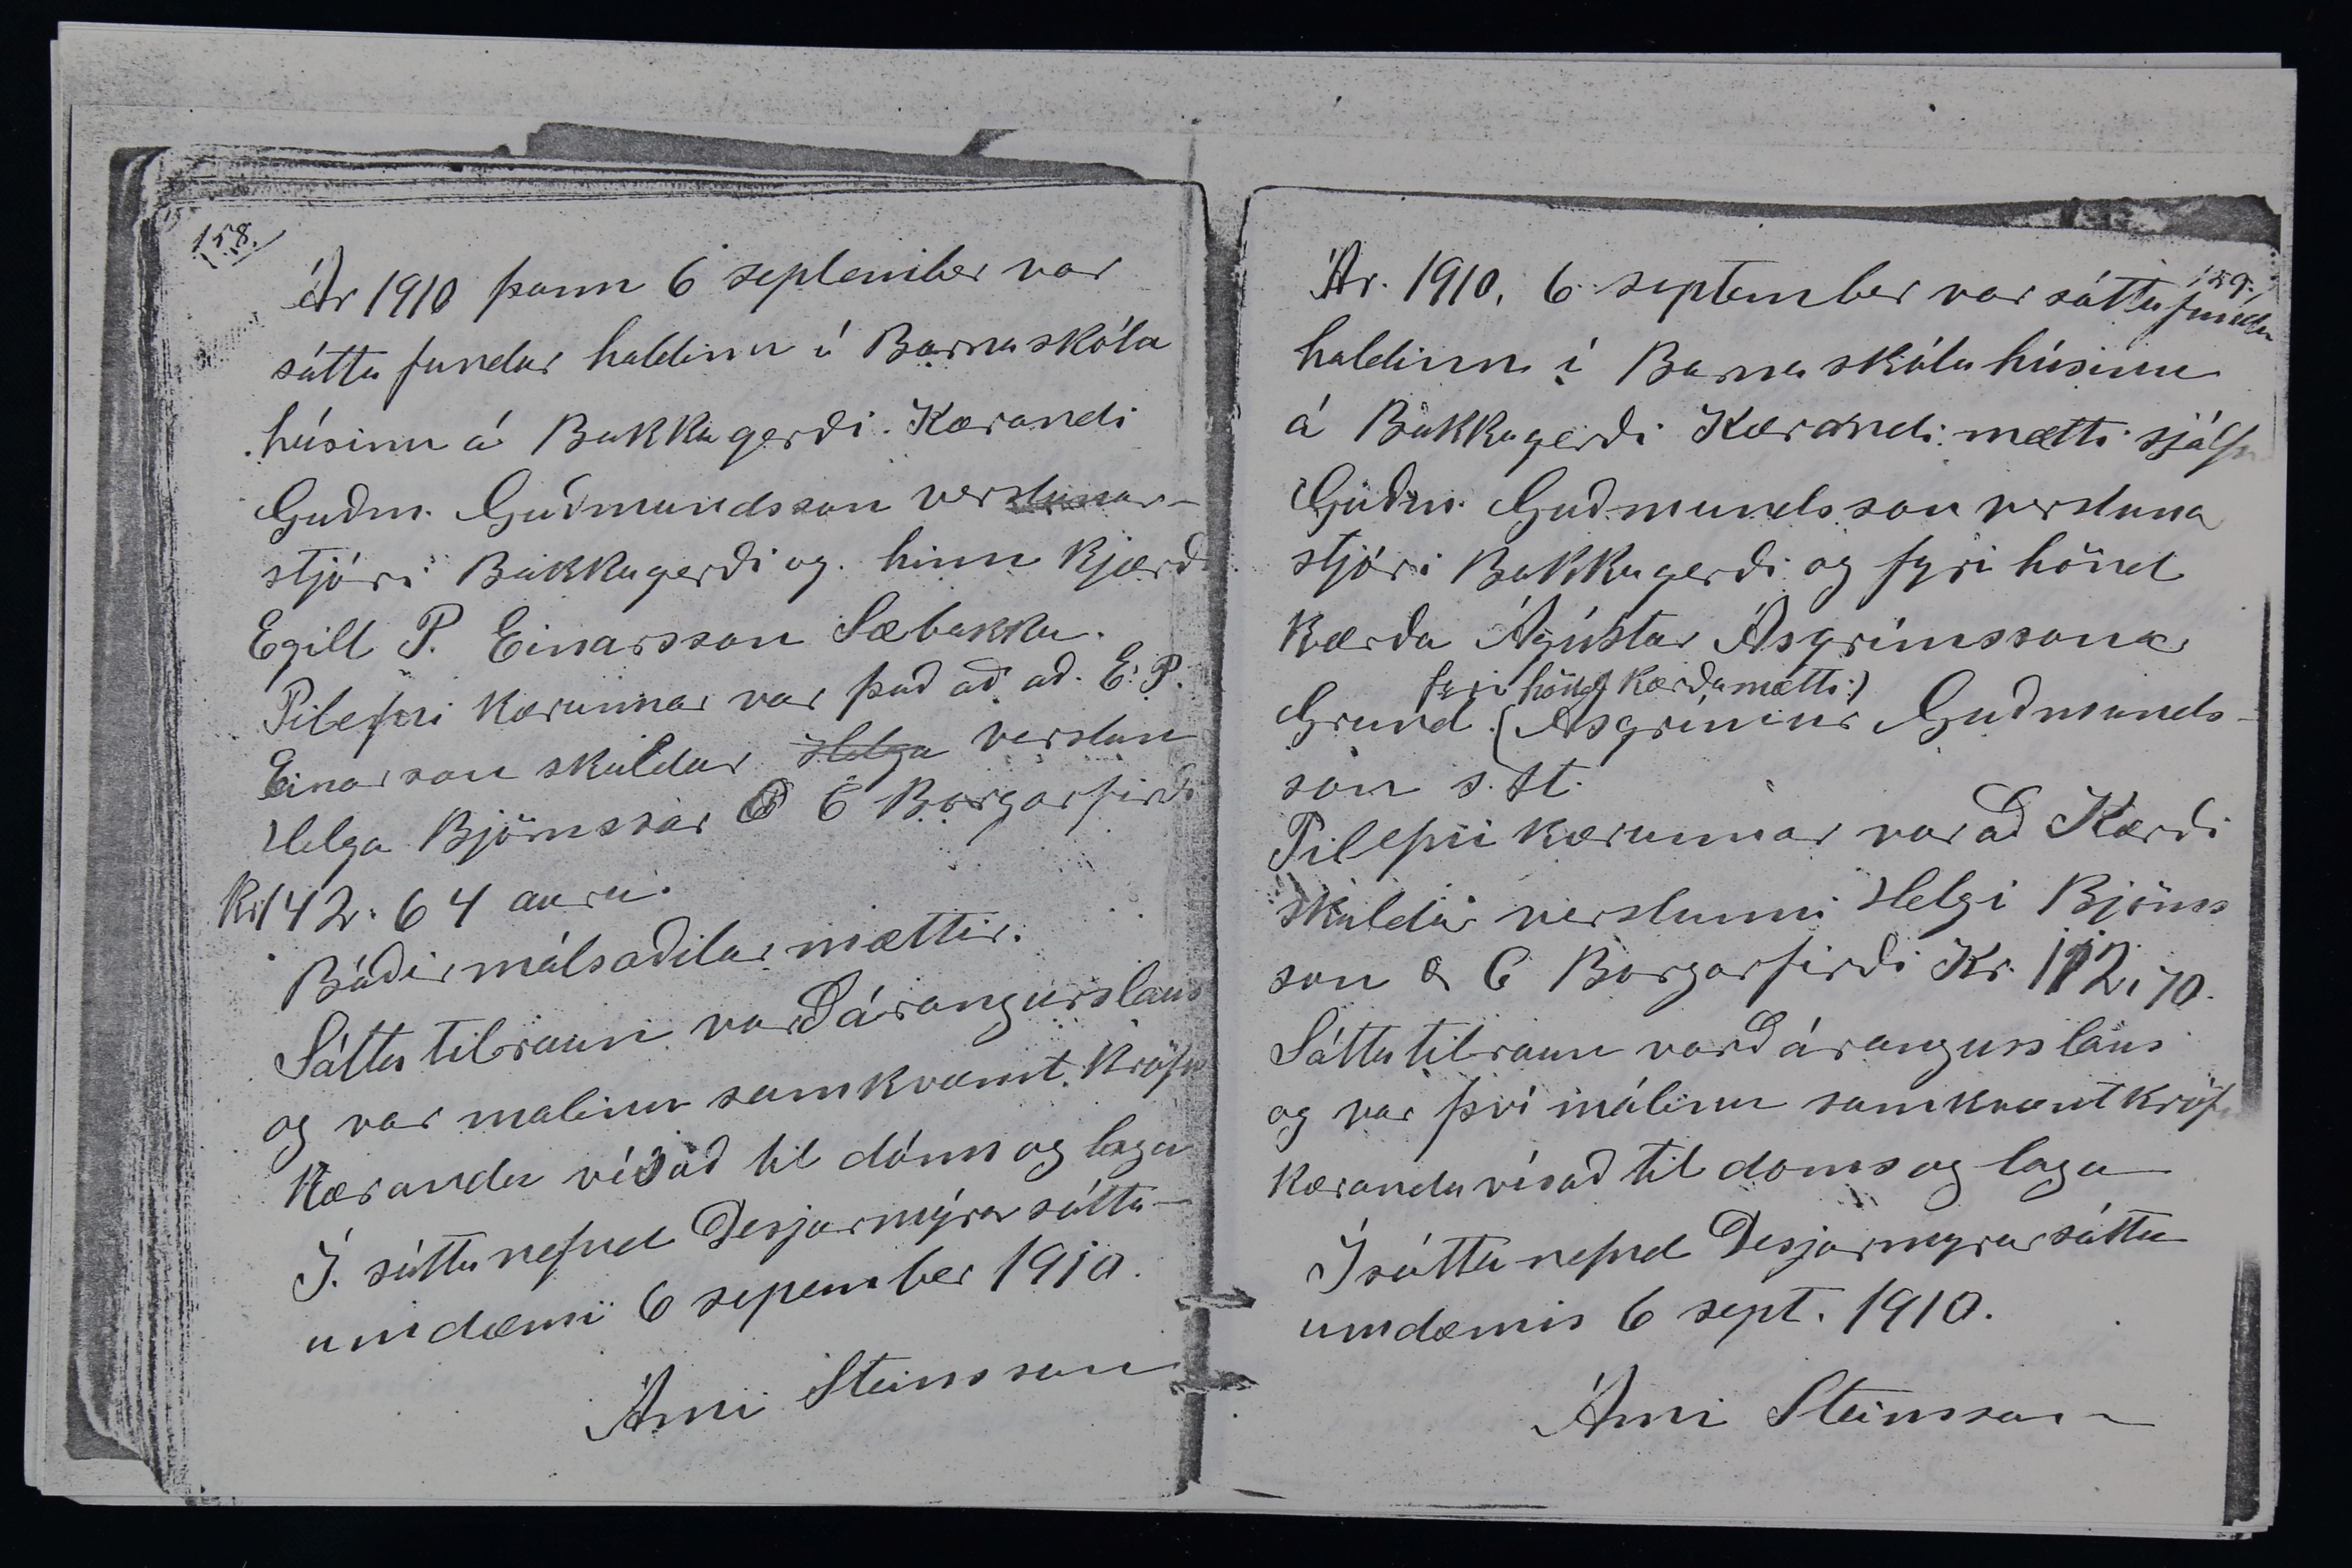 158.
Ár 1910 þann 6 september var
sátta fundur haldinn í Barnaskóla
húsinu á Bakkagerði. Kærandi
Guðm. Guðmundsson verslunar-
stjóri Bakkagerði og hinn kjærði
Egill P. Einarsson Sæbakka.
Tilefni kærunnar var það að að E. P.
Einarson skuldar Helga verslun
Helga Björnssar & C Borgarfirði
Kr 142. 64 aura.
Báðir málsaðilar mættir.
Sátta tilraun varð árangurslaus
og var malinu samkvæmt kröfu
Kæranda vísað til dóms og laga
Í. sáttanefnd Desjarmýrar sátta-
umdæmi 6 sepember 1910.
Árni Steinsson
159.
Ár. 1910. 6 september var sáttafundur
haldinn í Barnaskólahúsinu
á Bakkagerði Kærandi mætti sjálfur
Guðm. Guðmundsson versluna
stjóri Bakkagerði og fyri hönd
kærða Ágústar Ásgrímssonar
fyri hönd kærða mætti:)
Grund. (Ásgrímur Guðmunds-
son s. st.
Tilefni kærunnar var að Kærði
Skuldar verslunni Helgi Björns
son & C Borgarfirði Kr. 112,70.
Sáttatilraun varð árangusslaus
og var því málinu samkvæmt kröfu
Kæranda vísað til doms og laga
Í sáttanefnd Desjarmyrar sátta
umdæmis 6 sept. 1910.
Árni Steinsson